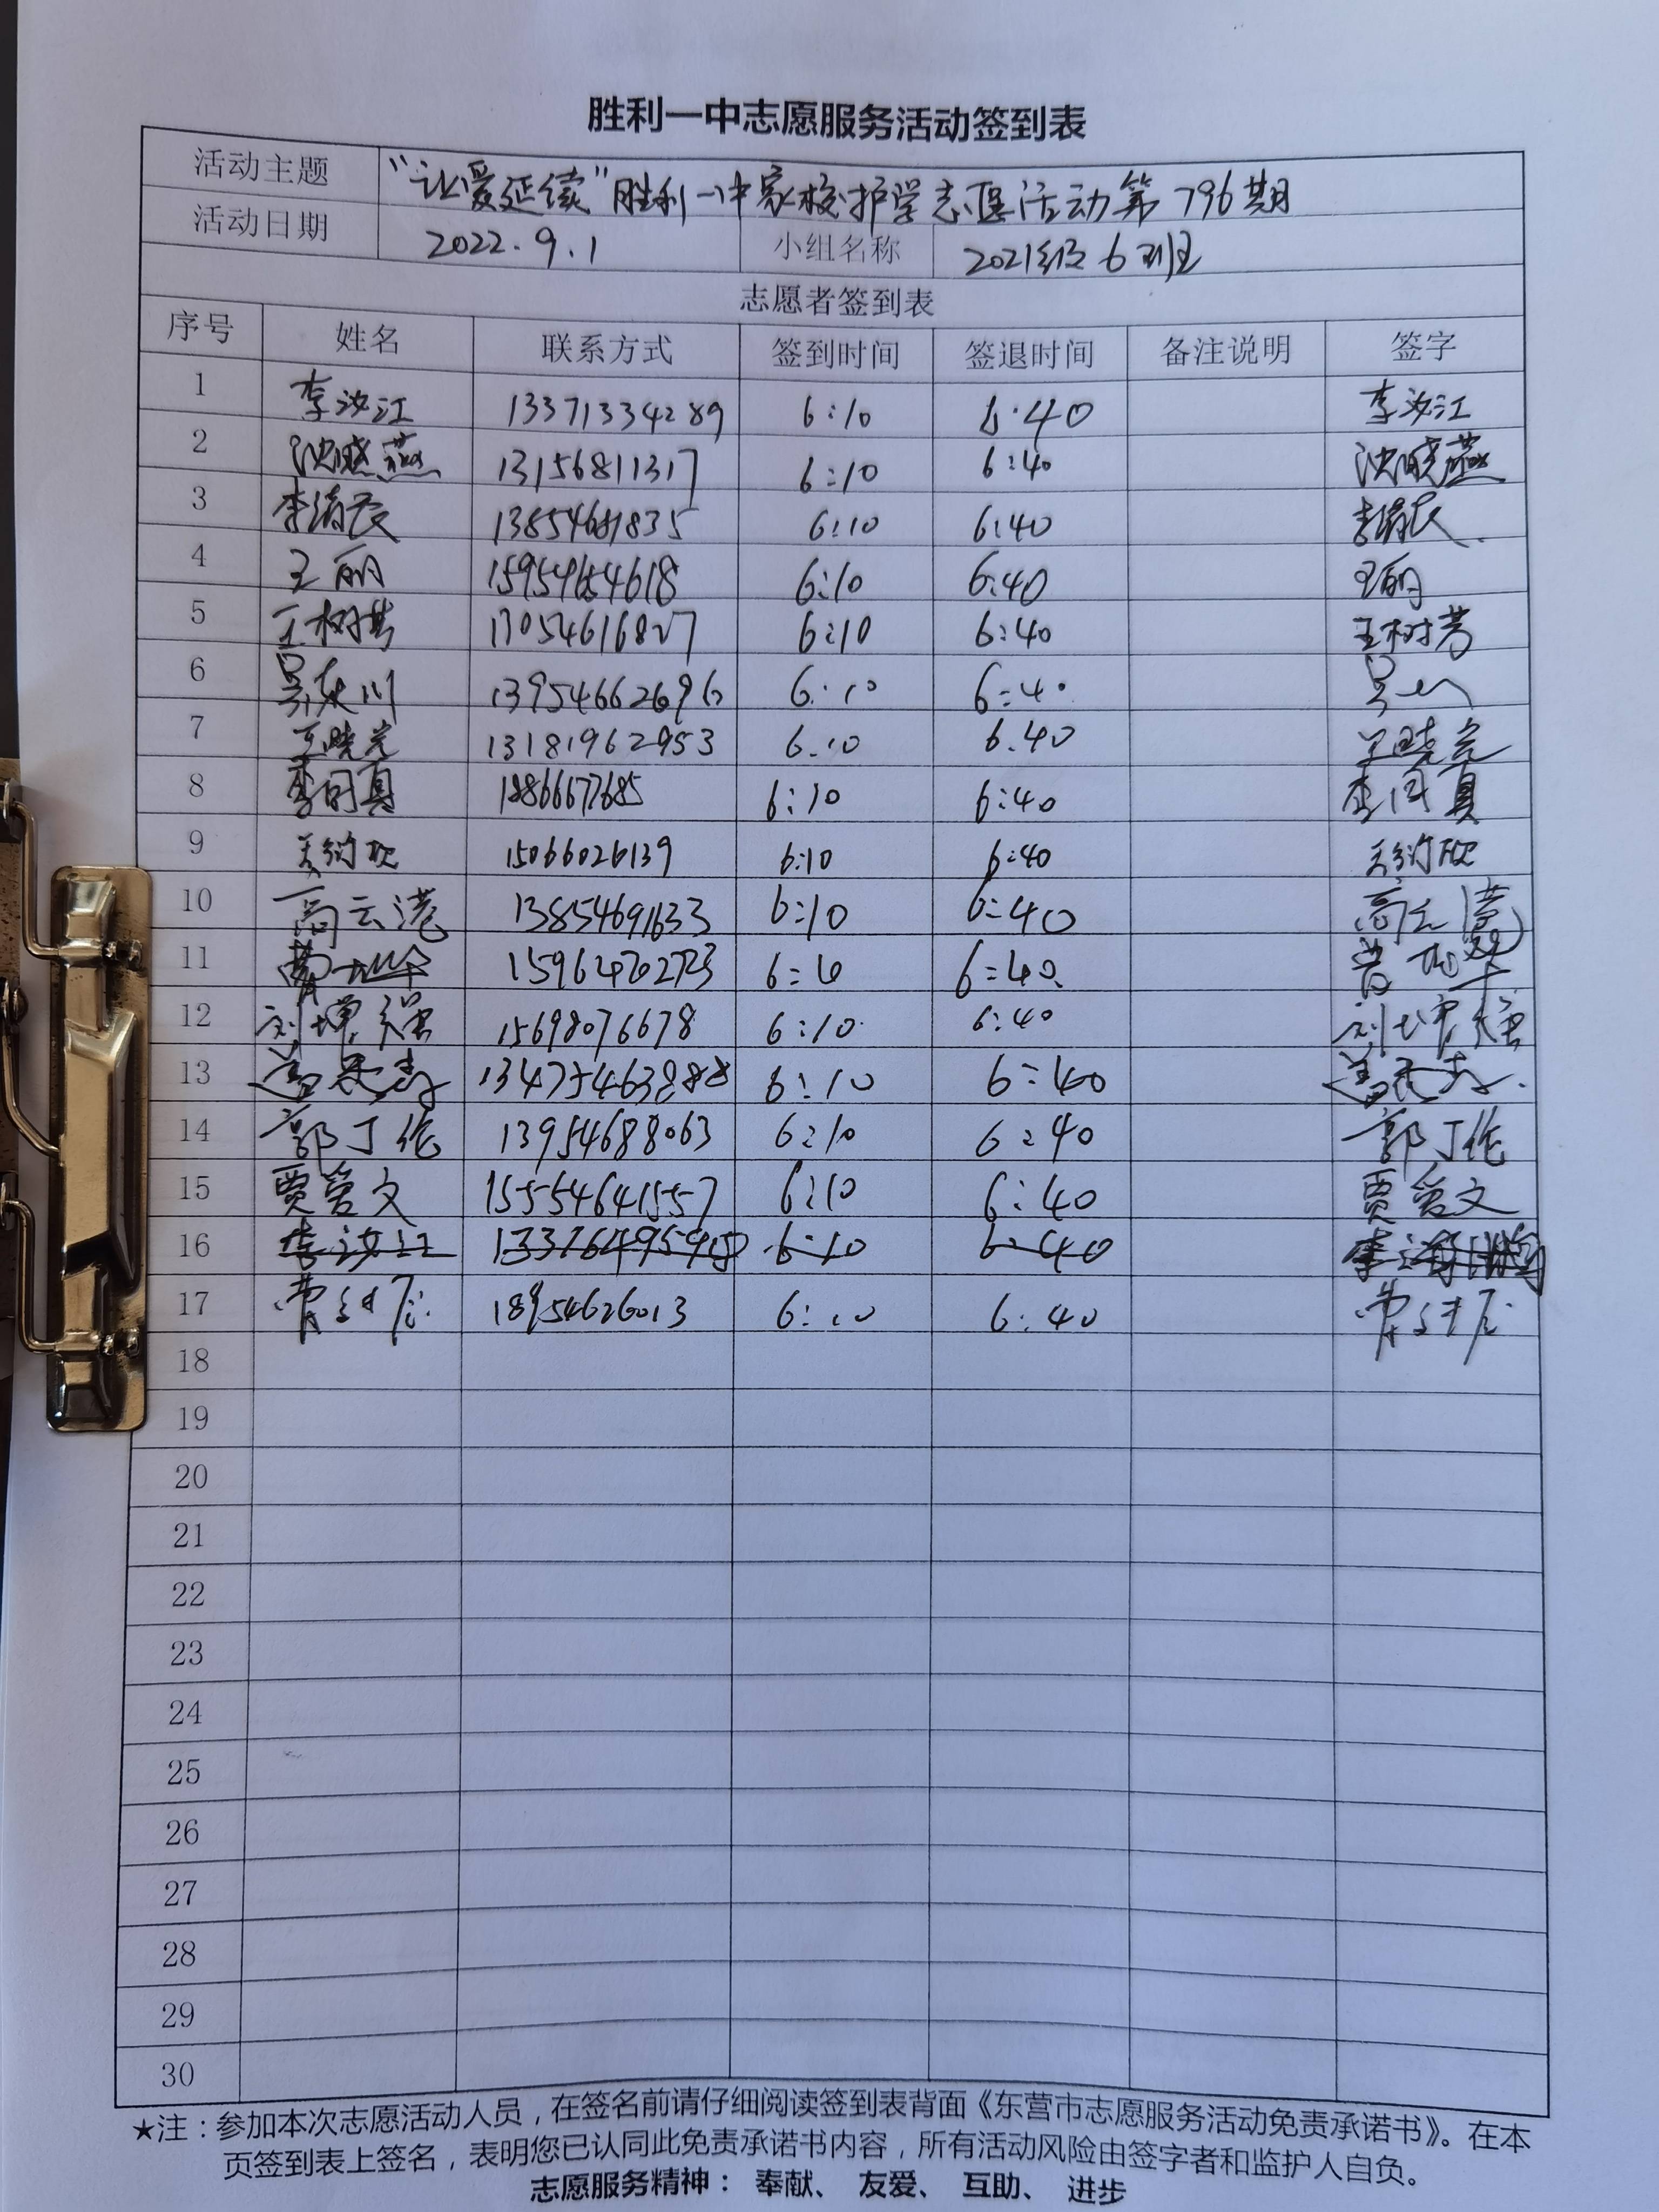 胜利一中志愿服务活动签到表
活动主题 “让爱延续”胜利一中家校护学志愿活动第796期
活动日期 2022.9.1 小组名称 2021级6班
志愿者签到表
序号 姓名 联系方式 签到时间 签退时间 备注说明 签字
1 李汝江 13371334289 6:10 6:40 李汝江
2 沈晓燕 13156811317 6:10 6:40 沈晓燕
3 13854681835 6:10 6:40
4 王丽 15954654618 6:10 6:40 王丽
5 王树芳 13054616827 6:10 6:40 王树芳
6 13954662696 6:10 6:40
7 王晓亮 13181962953 6.10 6.40 王晓亮
8 李同真 18866677685 6:10 6:40 李同真
9 15066026139 6:10 6:40
10 高云港 13854691633 6:10 6:40 高云港
11 6:40
12 刘坤强 15698076678 6:10 6:40 刘坤强
13 6:10 6:40
14 郭丁伦 13954688063 6:10 6:40 郭丁伦
15 贾爱文 15554641557 6:10 6:40 贾爱文
16 李汝江 6:10 6:40
17 18954626013 6:10 6:40
18
19
20
21
22
23
24
25
26
27
28
29
30
★注：参加本次志愿活动人员，在签名前请仔细阅读签到表背面《东营市志愿服务活动免责承诺书》。在本
页签到表上签名，表明您已认同此免责承诺书内容，所有活动风险由签字者和监护人自负。
志愿服务精神： 奉献、 友爱、 互助、 进步